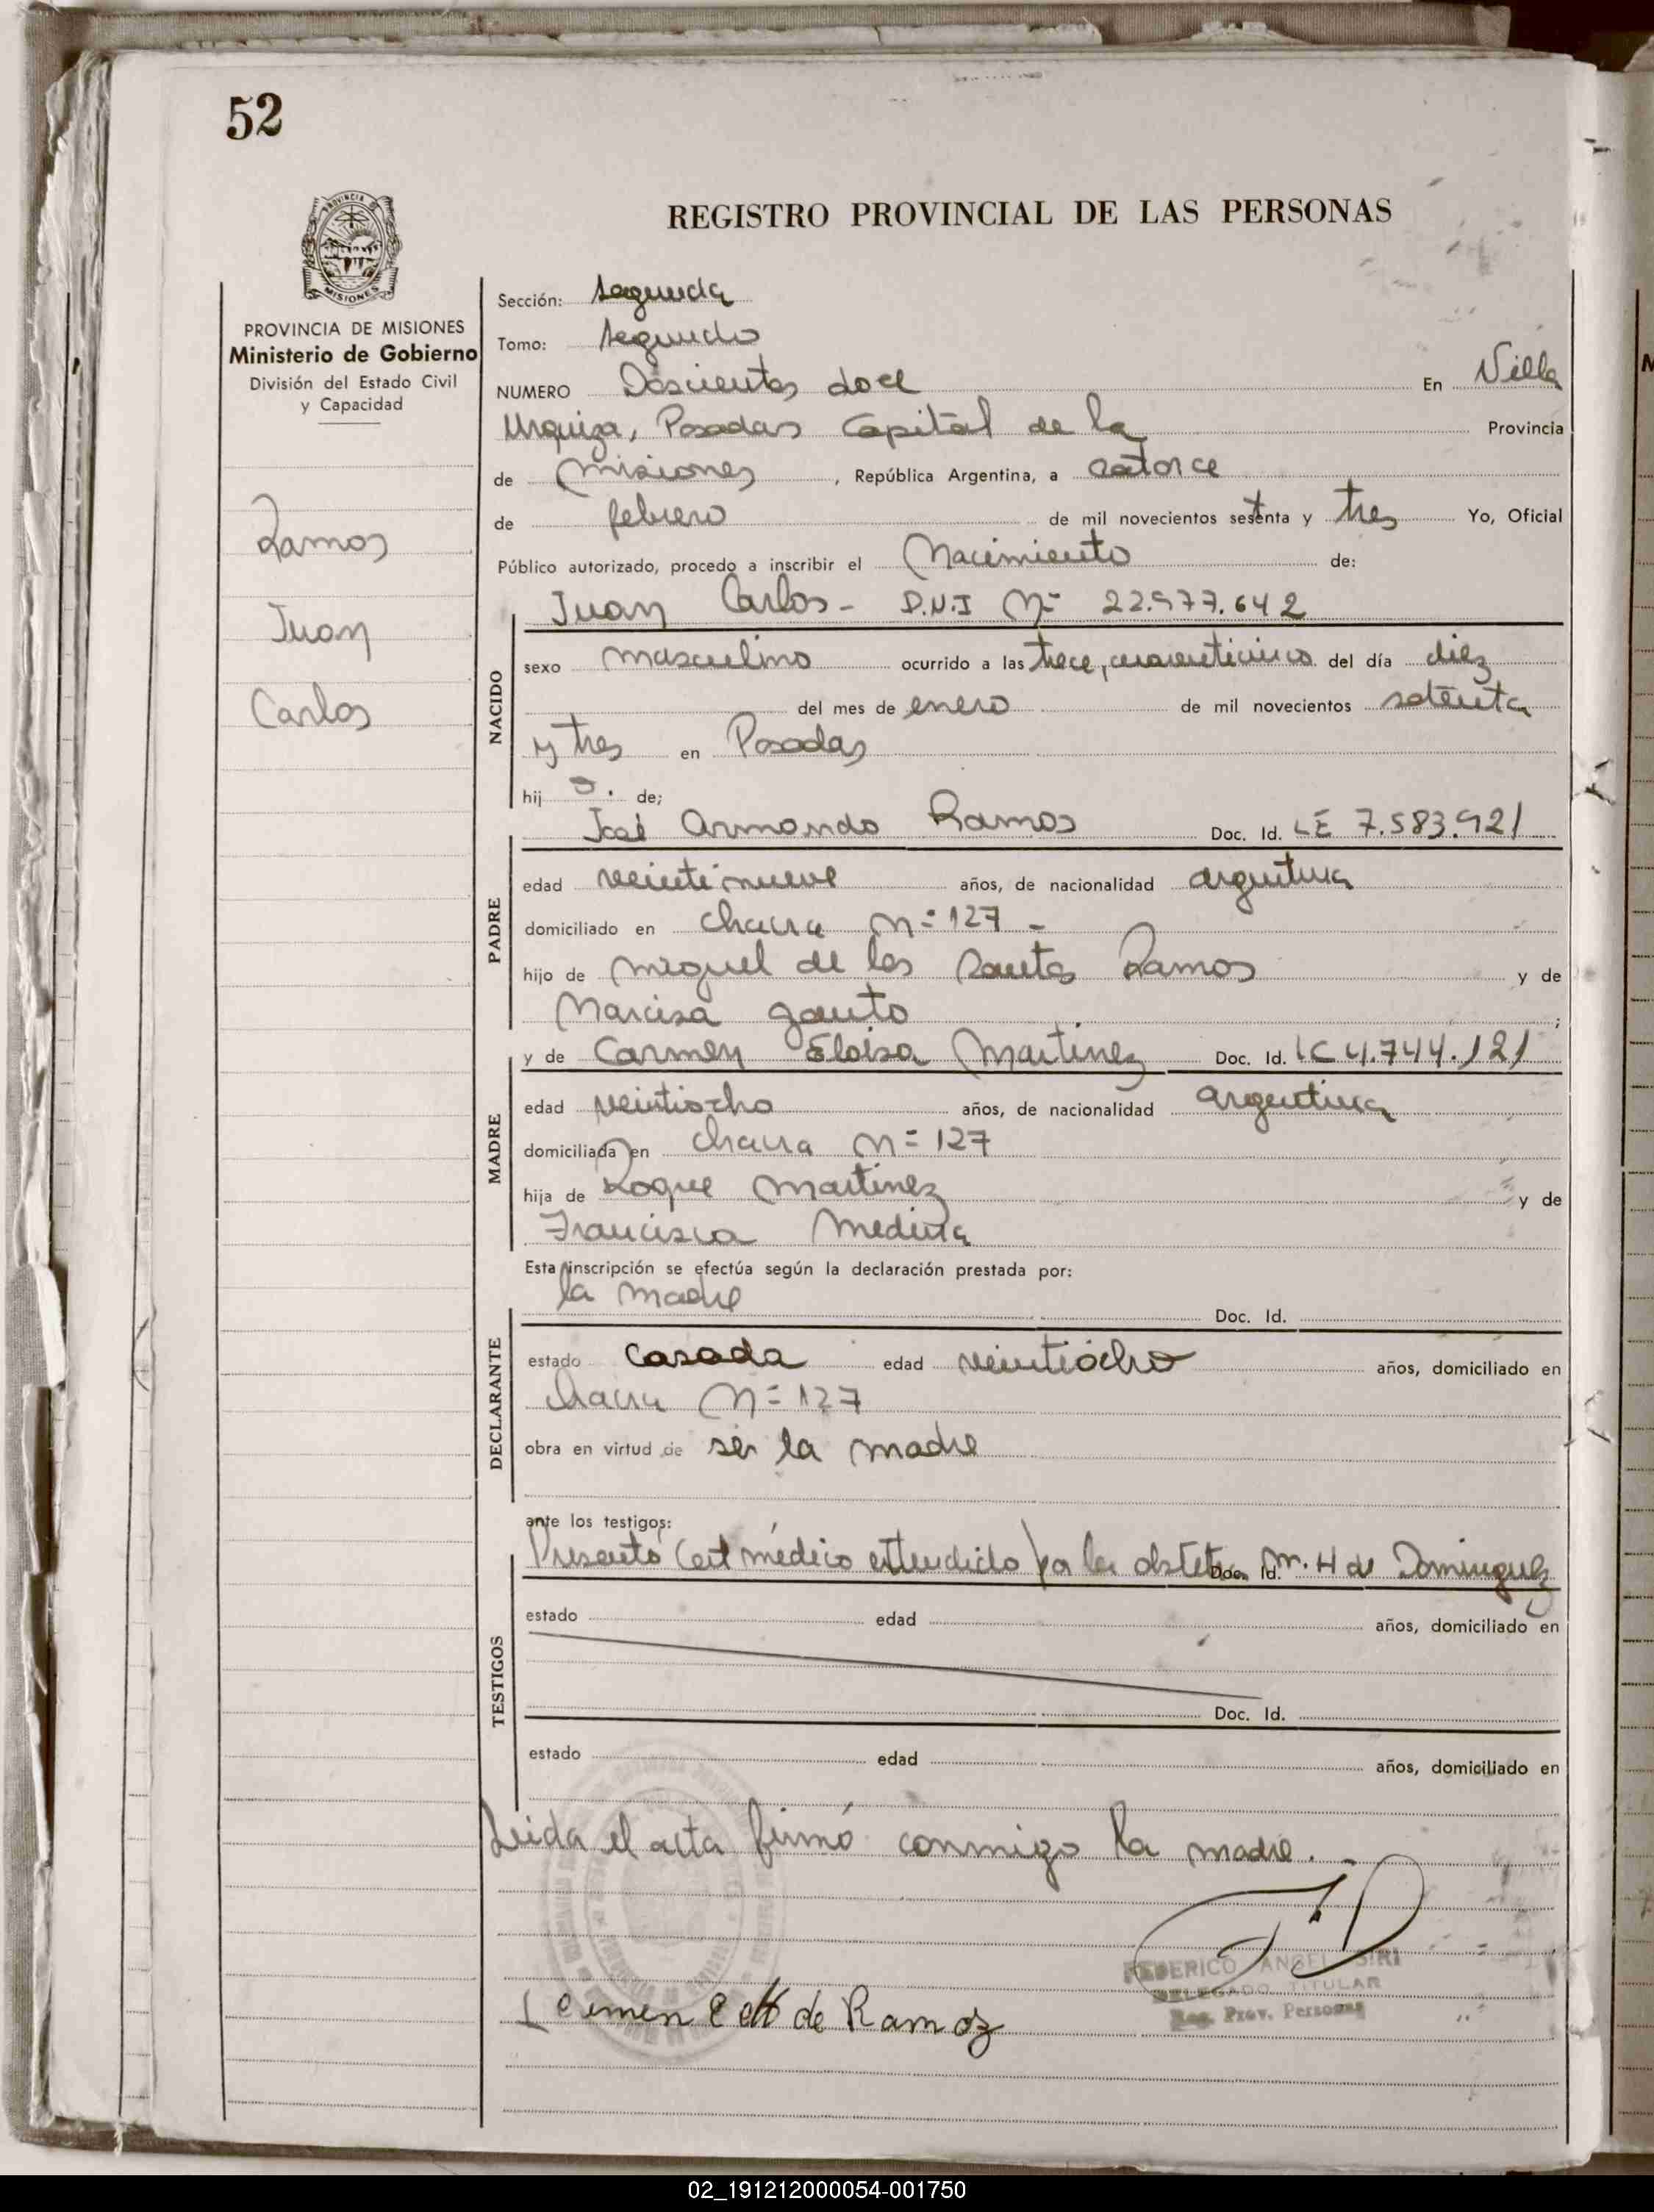 52
PROVINCIA DE
MISIONES
REGISTRO PROVINCIAL DE LAS PERSONAS
PROVINCIA DE MISIONES
Ministerio de Gobierno
División del Estado Civil
y Capacidad
Ramos
Juan
Carlos
Sección: segunda
Tomo: segundo
NUMERO Doscientos doce En Villa
Urquiza, Posadas Capital de la Provincia
de Misiones, República Argentina, a catorce
de febrero de mil novecientos setenta y tres Yo, Oficial
Público autorizado, procedo a inscribir el Nacimiento de:
Juan Carlos - D.N.I Nº 22.977.642
NACIDO
sexo masculino ocurrido a las trece, cuarenticinco del día diez
del mes de enero de mil novecientos setenta
y tres en Posadas
hij o. de;
José Armando Ramos Doc. Id. LE 7.583.921
PADRE
edad veintinueve años, de nacionalidad argentina
domiciliado en chacra Nº 127 -
hijo de Miguel de los Santos Ramos y de
Narcisa Gauto ;
y de Carmen Eloisa Martinez Doc. Id. LC 4.744.121
MADRE
edad veintiocho años, de nacionalidad argentina
domiciliada en chacra Nº 127
hija de Roque Martinez y de
Francisca Medina
Esta inscripción se efectúa según la declaración prestada por:
la madre Doc. Id.
DECLARANTE
estado casada edad veintiocho años, domiciliado en
chacra Nº 127
obra en virtud de ser la madre
ante los testigos:
Presentó Cert médico extendido por la obstetra Doc. Id. M. H de Dominguez
TESTIGOS
estado edad años, domiciliado en
Doc. Id.
estado edad años, domiciliado en
Leida el acta firmó conmigo la madre.
FEDERICO ANGEL SIRI
DELEGADO TITULAR
Reg. Prov. Personas
de Ramoz
02_191212000054-001750